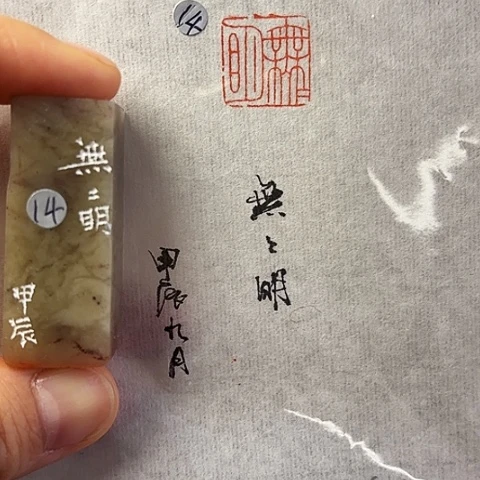 14
無明
無〻明
甲辰九月
無〻明
14
甲辰